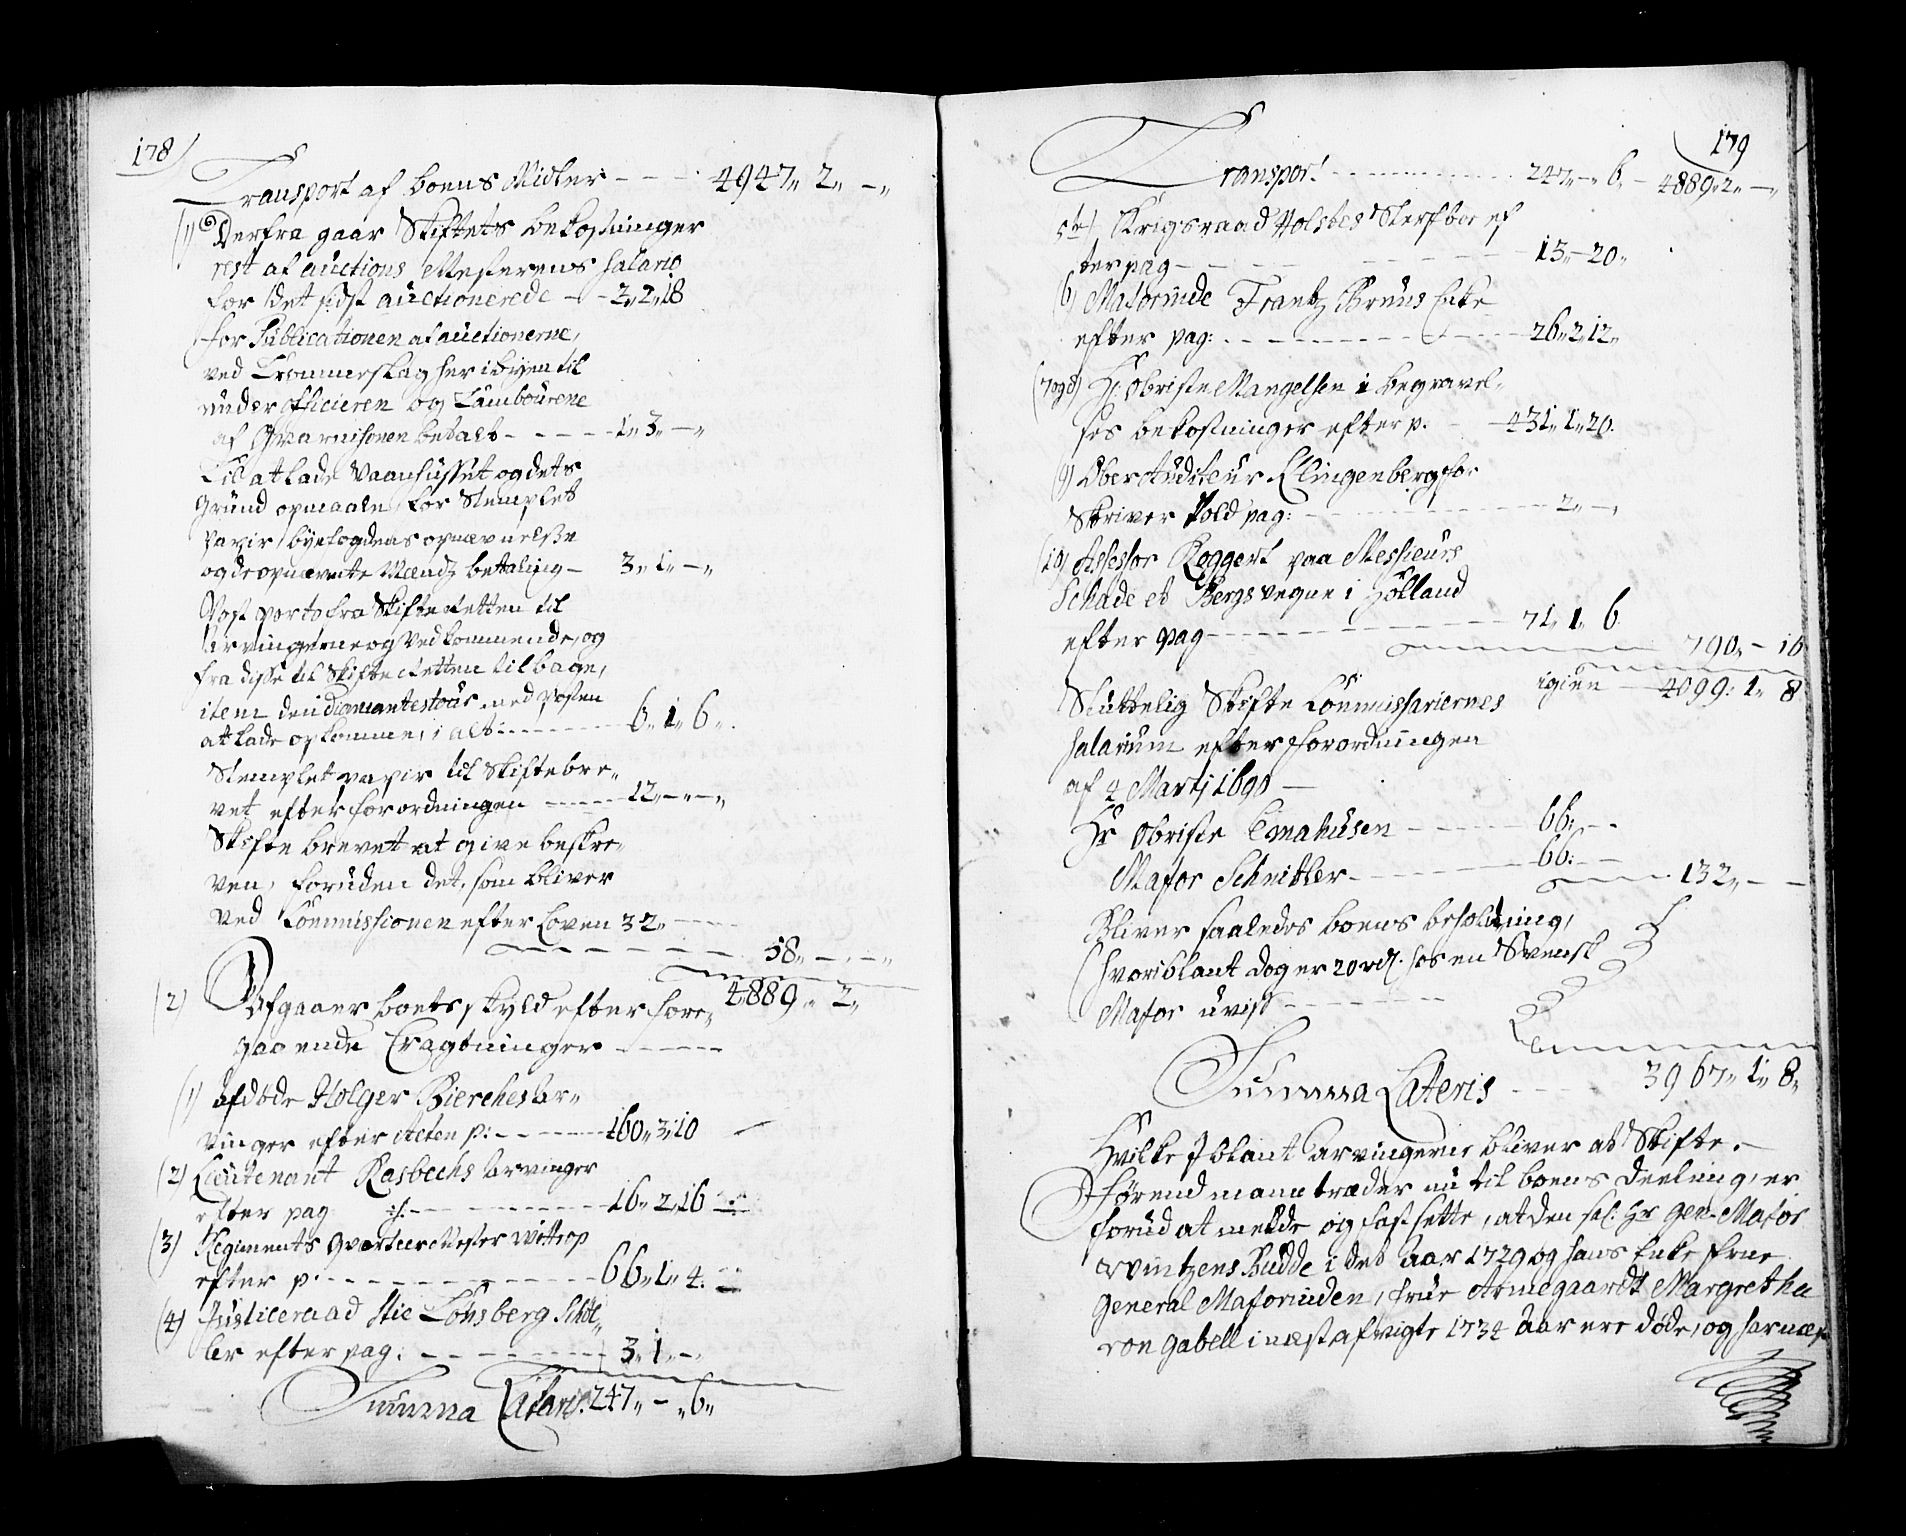 178
Transport af boens Midler - - - 4947,, 2,, -,,
(1) Derfra gaar Skiftets bekostninger
rest af auctions Mesterens Salario
for det sidst auctionerede - - 2,, 2,, 18
for Publicationen af auctionerne,
ved Trommeslag her i byen til
under officieren og Tambourene
af Gvarnisonen betalt - - - - - 1,, 3,, -,,
Til at lade Vaanhusset og dets
Grund opmaale, for Stemplet
Papir, byefogdens opnævnelsse
og de opnævnte Mænds betaling - 3,, 1,, -,,
Post porto fra Skifte Retten til
arvingerne og Vedkommende, og
fra disse til Skifte Retten tilbage,
item den diamantestous med Posten
at lade opkomme, i alt - - - - 6,, 1,, 6,,
Stemplet papir til Skiftebre-
vet efter forordningen - - - - 12,, -,, -,,
Skifte brevet at give beskre-
ven, foruden det, som bliver
ved Commissionen efter Loven 32,, - - -
- - - - 58,, -,, -,,
4889,, 2,,
(2) Afgaaer boets skyld efter fore-
gaaende Tragtninger - - - - -
(1) afdøde Holger Bierches ar-
vinger efter Acten p: - - - - - 160,, 3,, 10
(2) Lieutenant Rasbechs arvinger
efter pag - - - - - - - 16,, 2,, 16
(3) Regiments Qvarteer Mester Wittrop
efter p. - - - - - - - - - 66,, 1,, 4.
(4) Justiceraad Stie Tønsberg Schøl-
ler efter pag. - - - - - - - 3,, 1,, -
Summa Lateris. 247,, -,, 6,,
179
Transport - - - - - - - - 247,, -,, 6,, - 4889,, 2,, -,,
5te) Krigsraad Holstes Sterfboe ef
ter pag - - - - - - - - 13,, - 20,,
6) Majorinde Frantz Bruns Enke
efter pag: - - - - - - - - 26,, 2,, 12,,
(7 og 8) Hr Obriste Mangelsen i begravel-
ses bekostninger efter p. - - 431,, 1,, 20.
9) Ober Auditeur Klingenberg for
Skriver Told pag: - - - - - - - 2,, -,,
(10) Assessor Roggert paa Messieurs
Schade et Bergs vegne i Holland
efter pag - - - - - - - - - 71,, 1,, 6.
790,, - 16
igien - 4099,, 1,, 8
Sluttelig Skifte Commissariernes
Salarium efter forordningen
af 4 Martj 1690 -
Hr Obriste Emahusen - - - - - 66,, - -
Major Schnitler - - - - - - - 66,, - -
132,, - -
Bliver saaledes boens beholdning,
(hvoriblant dog er 20 rdl. hos en Svensk
Major uvist - - - - - -
Summa Lateris - - - - 3967,, 1,, 8,,
Hvilke Iblant arvingerne bliver at Skifte. -
Førend mann træder nu til boens Deeling, er
forud at melde og fastsette, at den sal: Hr Gen. Major
Wintzens Budde i det Aar 1729 og hans Enke Frue
General Majorinden, frue Armegaardt Margretha
von Gabell i næst afvigte 1734 Aar ere døde, og har